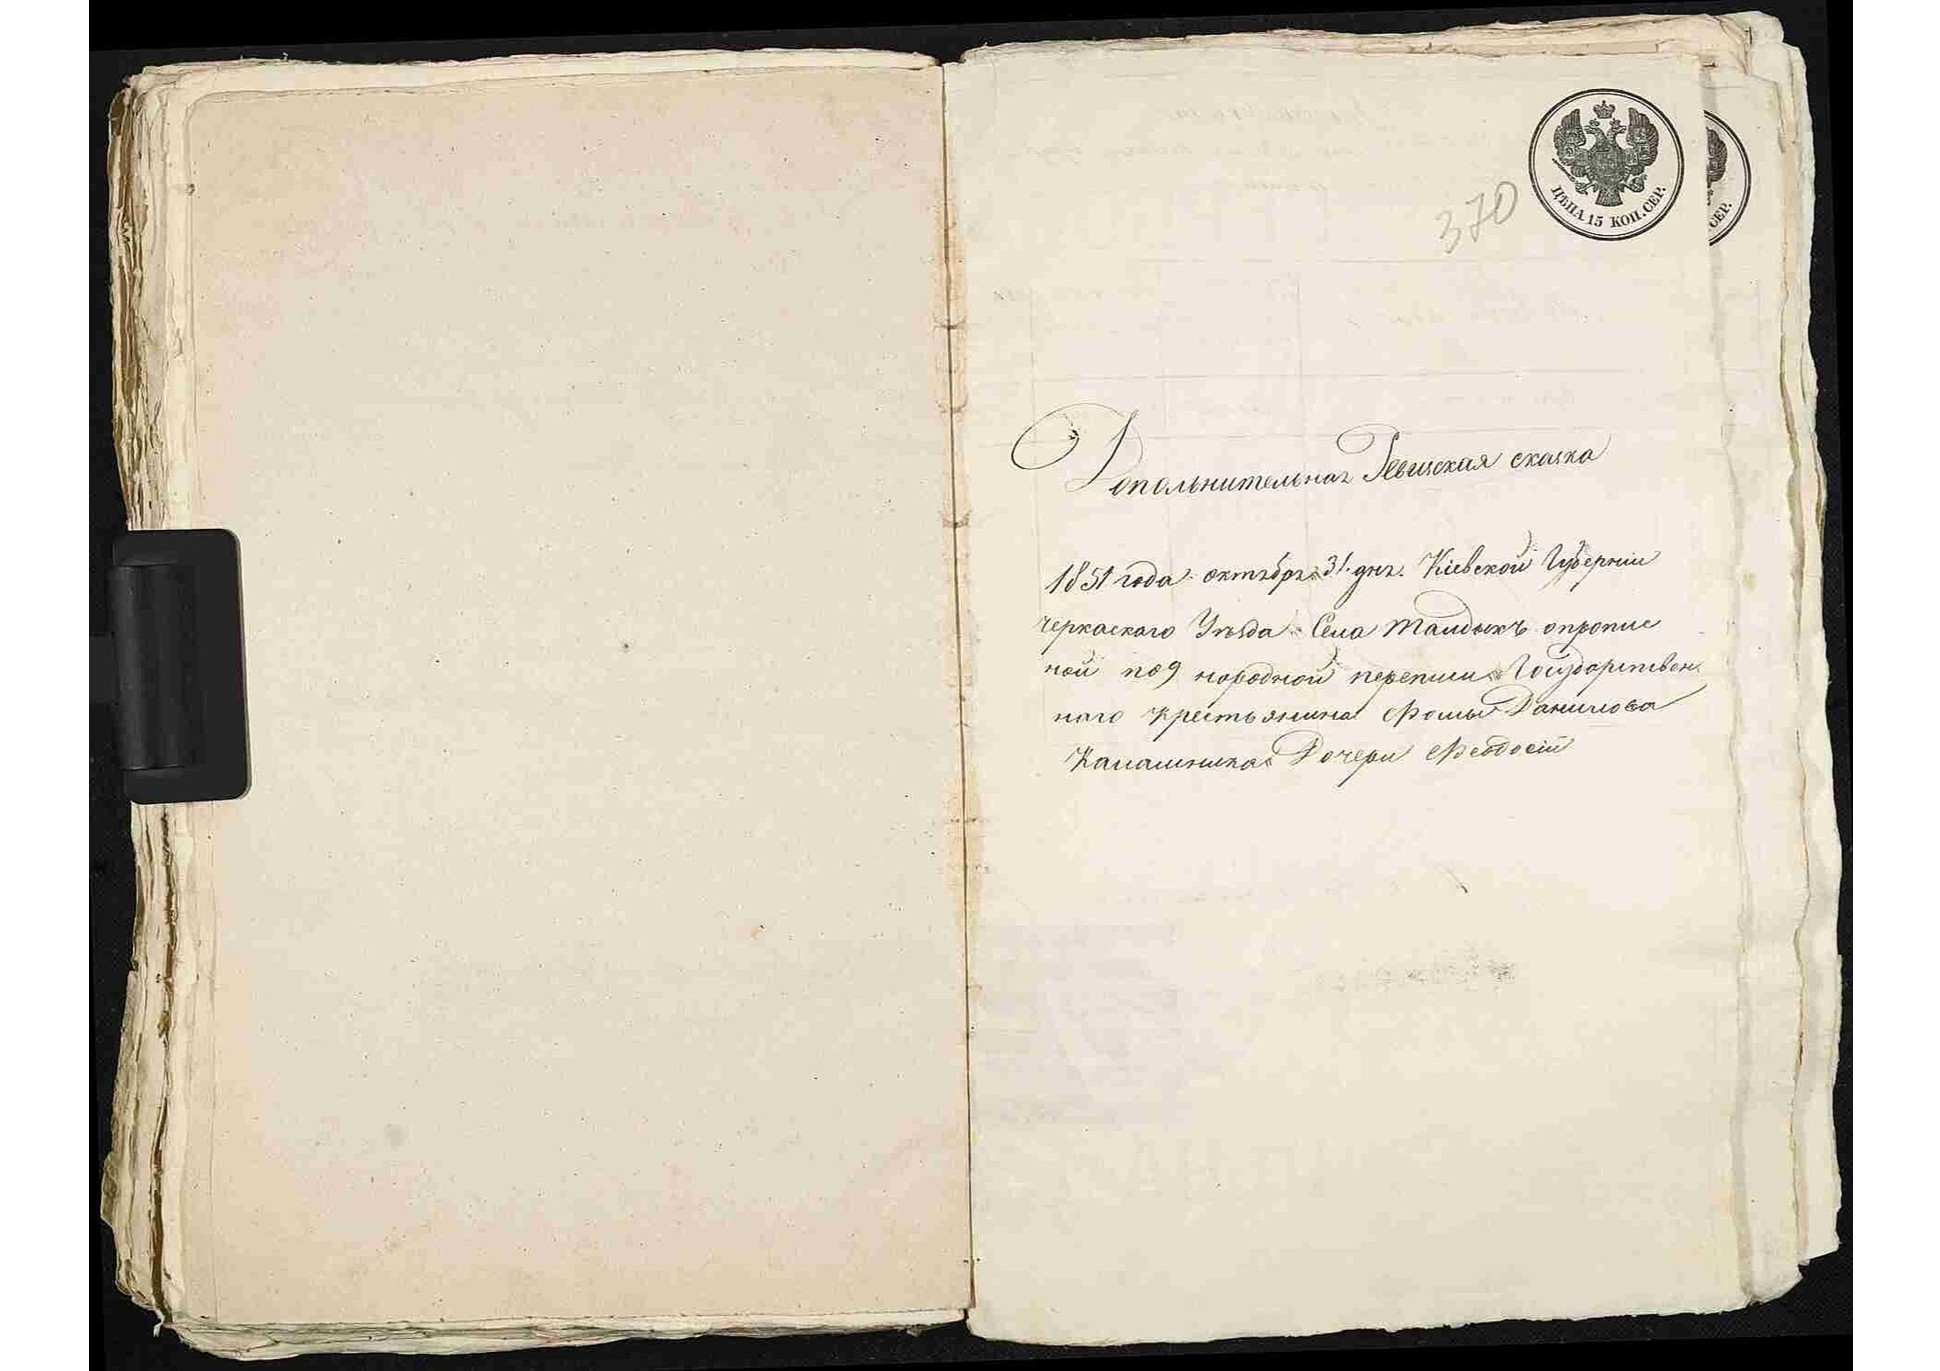 ЦѢНА 15 КОП. СЕР.
СЕР.
370
Дополнительная Ревизская сказка
1851 года октября 31 дня. Кіевской Губерніи
Черкаского Уѣзда Села опропис
ной по 9 народной переписи Государствен
наго крестьянина Фомы Данилова
Калашника Дочери Феодосіи